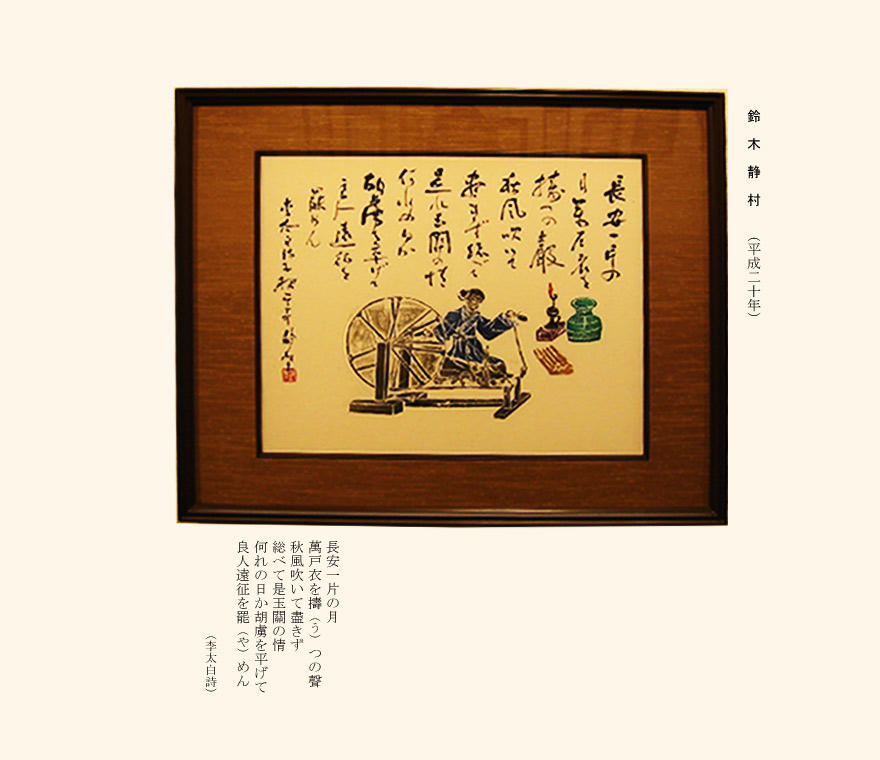 鈴木静村 (平成二十年)
長安一片の
月萬戸衣を
擣つの聲
秋風吹いて
盡きず総べて
是れ玉関の情
何れの日か
胡虜を平げて
良人遠征を
罷めん
長安一片の月
萬戸衣を擣(う)つの聲
秋風吹いて盡きず
総べて是玉關の情
何れの日か胡虜を平げて
良人遠征を罷(や)めん
(李太白詩)